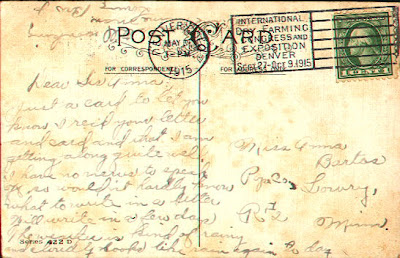 POST CARD
FOR CORRESPONDENCE
DENVER
MAY
1915
INTERNATIONAL
DRY FARMING
CONGRESS AND
EXPOSITION
DENVER
SEPT. 27-OCT. 9, 1915
Dear
Just a card to let you
know I rec'd your letter
and card and that I am
getting along quite well.
I have no news to speak
of so would hardly know
what to write in a letter
Will write in a few days
The weather is kind of rainy
and looks like rain again to day
Miss Anna
Lowry,
R#2
Minn.
Series 422 D